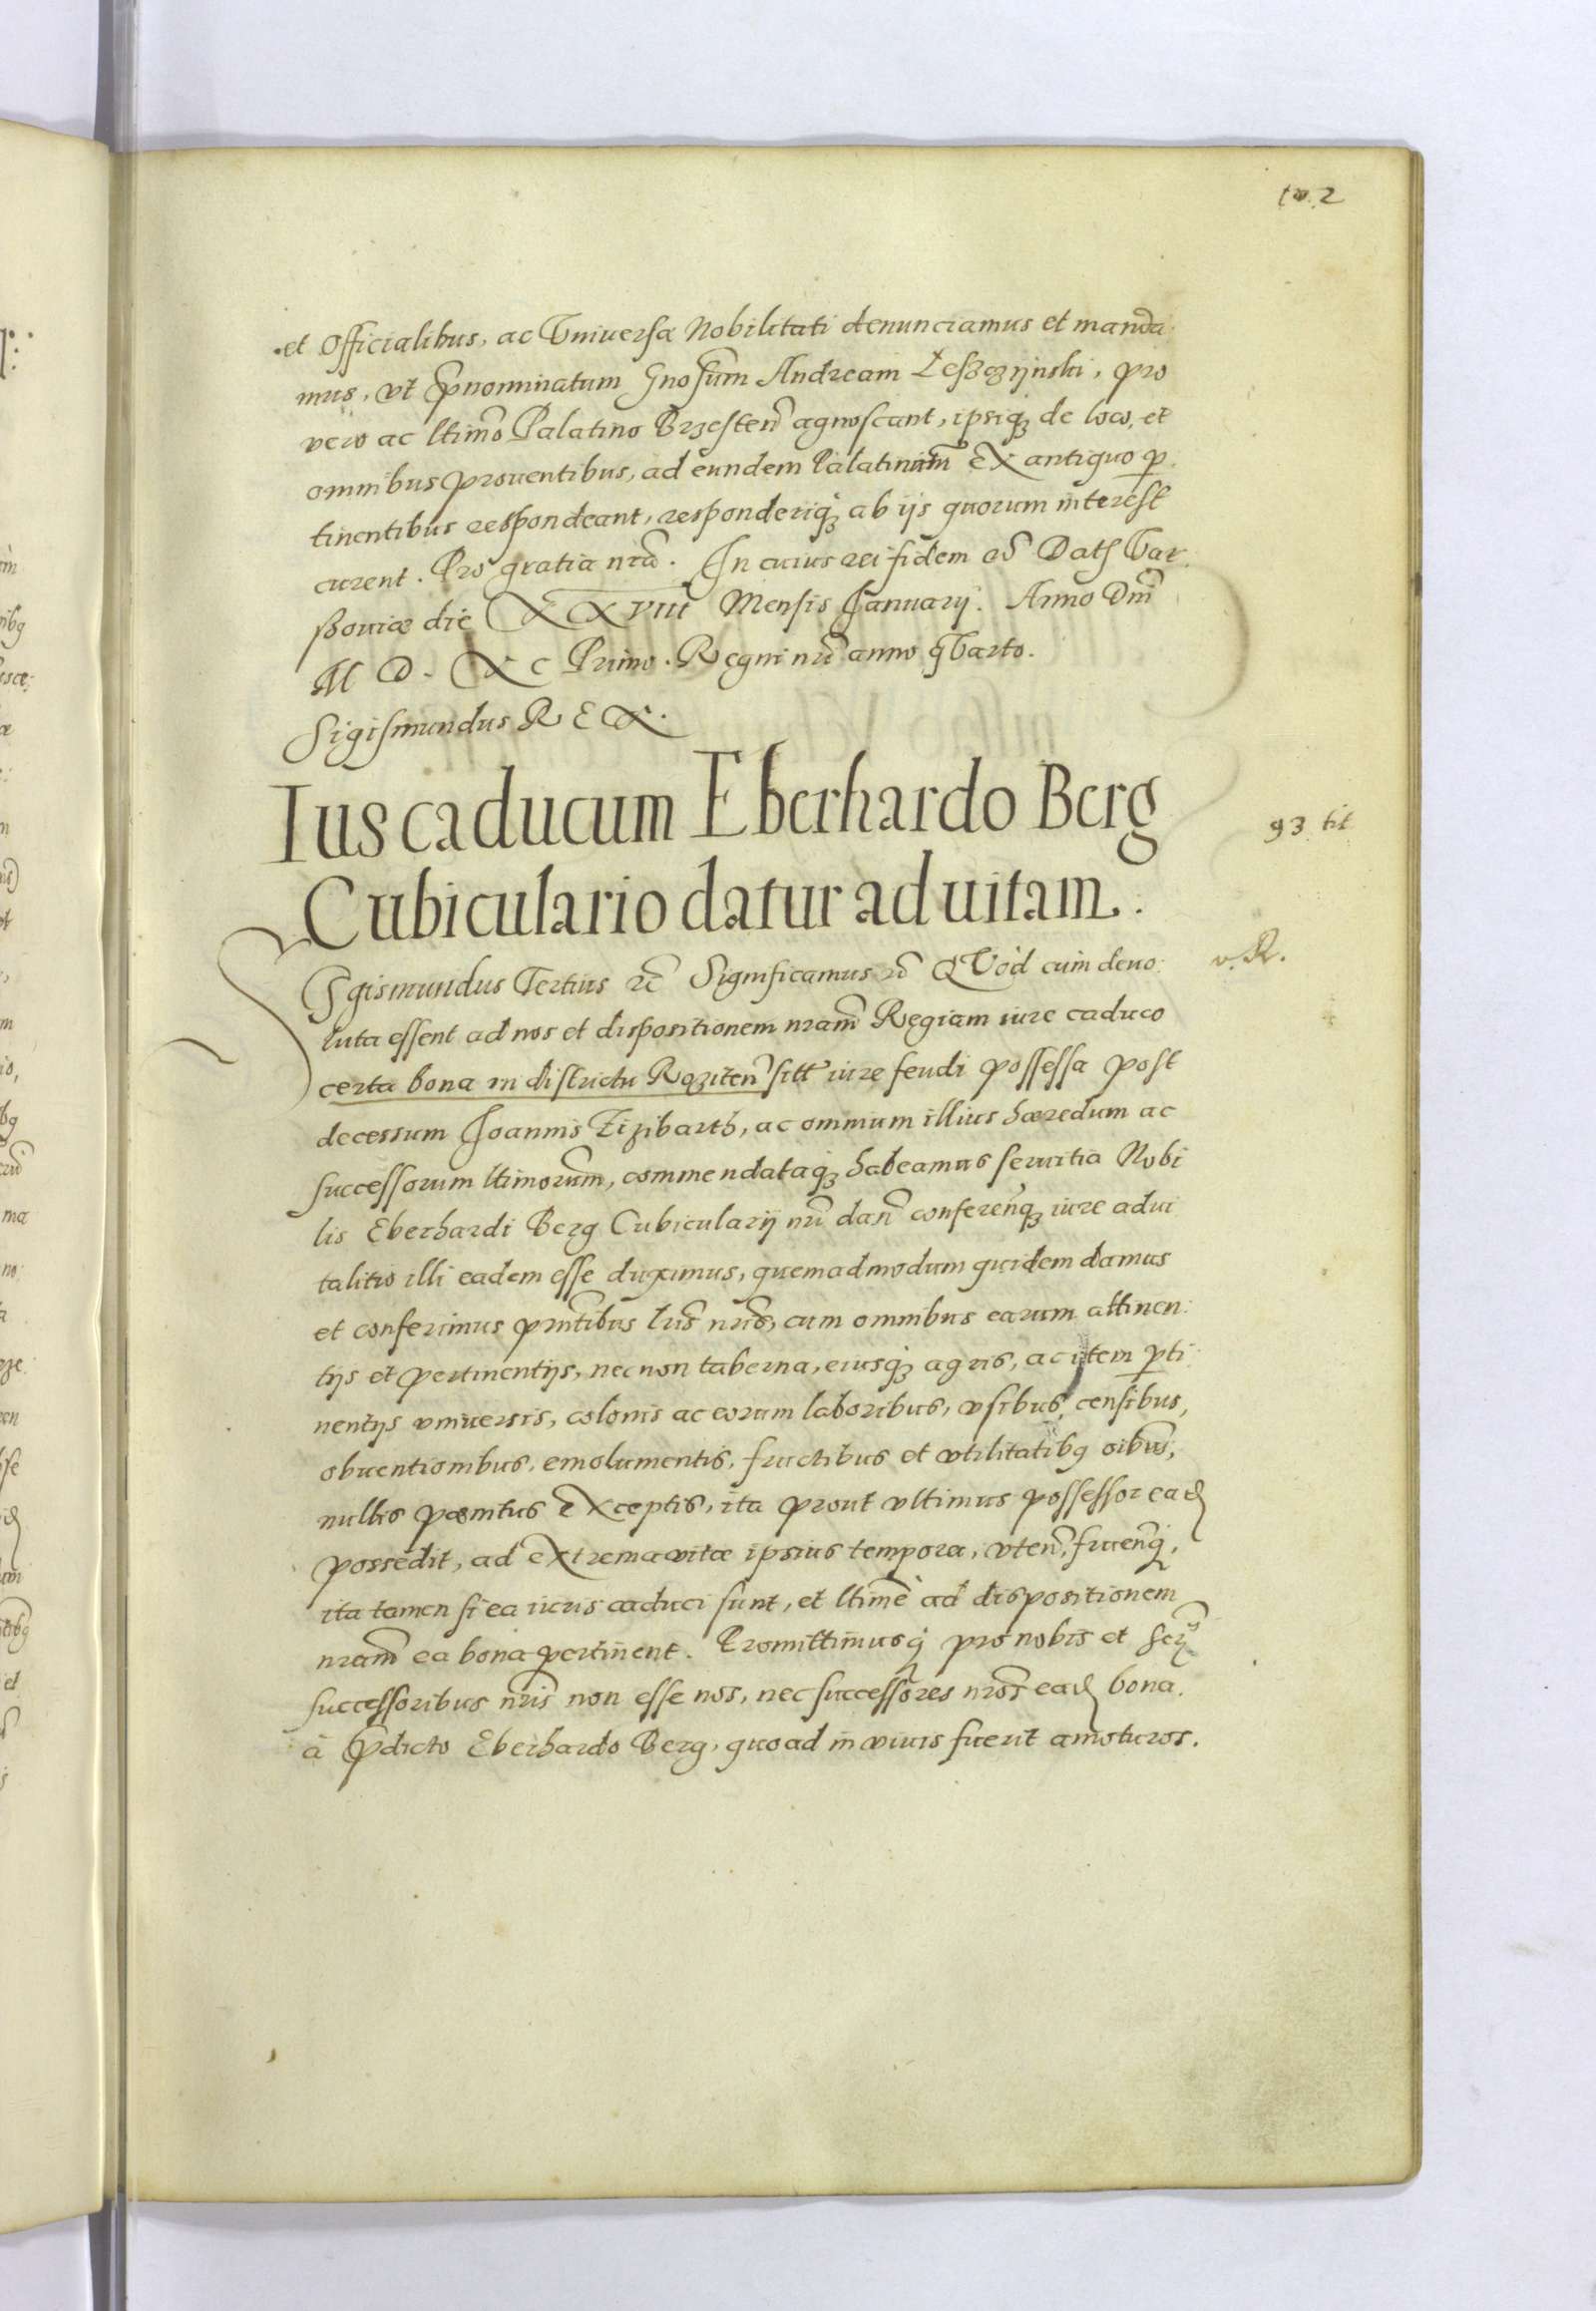 102
et Officialibus, ac Vniuersæ Nobilitati denunciamus et manda
mus, vt p̄nominatum Gnosūm Andream Leszczijnski, pro
vero ac ltimo Palatino Brzesteñ agnoscant, ipsiq₃ de loco, et
omnibus prouentibus, ad eundem Palatinatum ex antiquo p̲
tinentibus respondeant, responderiq₃ ab ijs quorum interest
curent. Pro gratia nrã. In cuius rei fidem Dat Var
ßouiæ die XXVIII Mensis Januarij. Anno Dñi
M D. XC Primo. Regni nri anno qVarto.
Sigismundus REX.
Ius caducum Eberhardo Berg
Cubiculario datur ad uitam.
93 tit
v. R.
Sigismundus Tertius etc̃ Significamus QVod cum deuo
luta essent ad nos et dispositionem nram̃ Regiam iure caduco
certa bona in districtu Roziteñ sitt iure feudi possessa post
decessum Joannis Tizibarth, ac omnium illius hæredum ac
successorum ltimorum, commendataq₃ habeamus seruitia Nobi
lis Eberhardi Berg Cubicularij nri dañ conferenq₃ iure adui
talitio illi eadem esse duximus, quemadmodum quidem damus
et conferimus pñtibus lris nris, cum omnibus earum attinen
tijs et pertinentijs, nec non taberna, eiusq₃ agris, ac item p̲ti
nentijs vniuersis, colonis ac eorum laboribus, vsibus, censibus,
obuentionibus, emolumentis, fructibus et vtilitatibq oibus,
nullis pænitus exceptis, ita prout vltimus possessor ead
possedit, ad extrema vitæ ipsius tempora, vteñ, fruenq,
ita tamen si ea iuris caduci sunt, et ltimè ad dispositionem
nram̃ ea bona pertinent. Promittimusq pro nobis et Ser
successoribus nris non esse nos, nec successores nros ead bona
à p̄dicto Eberhardo Berg, quoad in viuis fuerit amoturos.